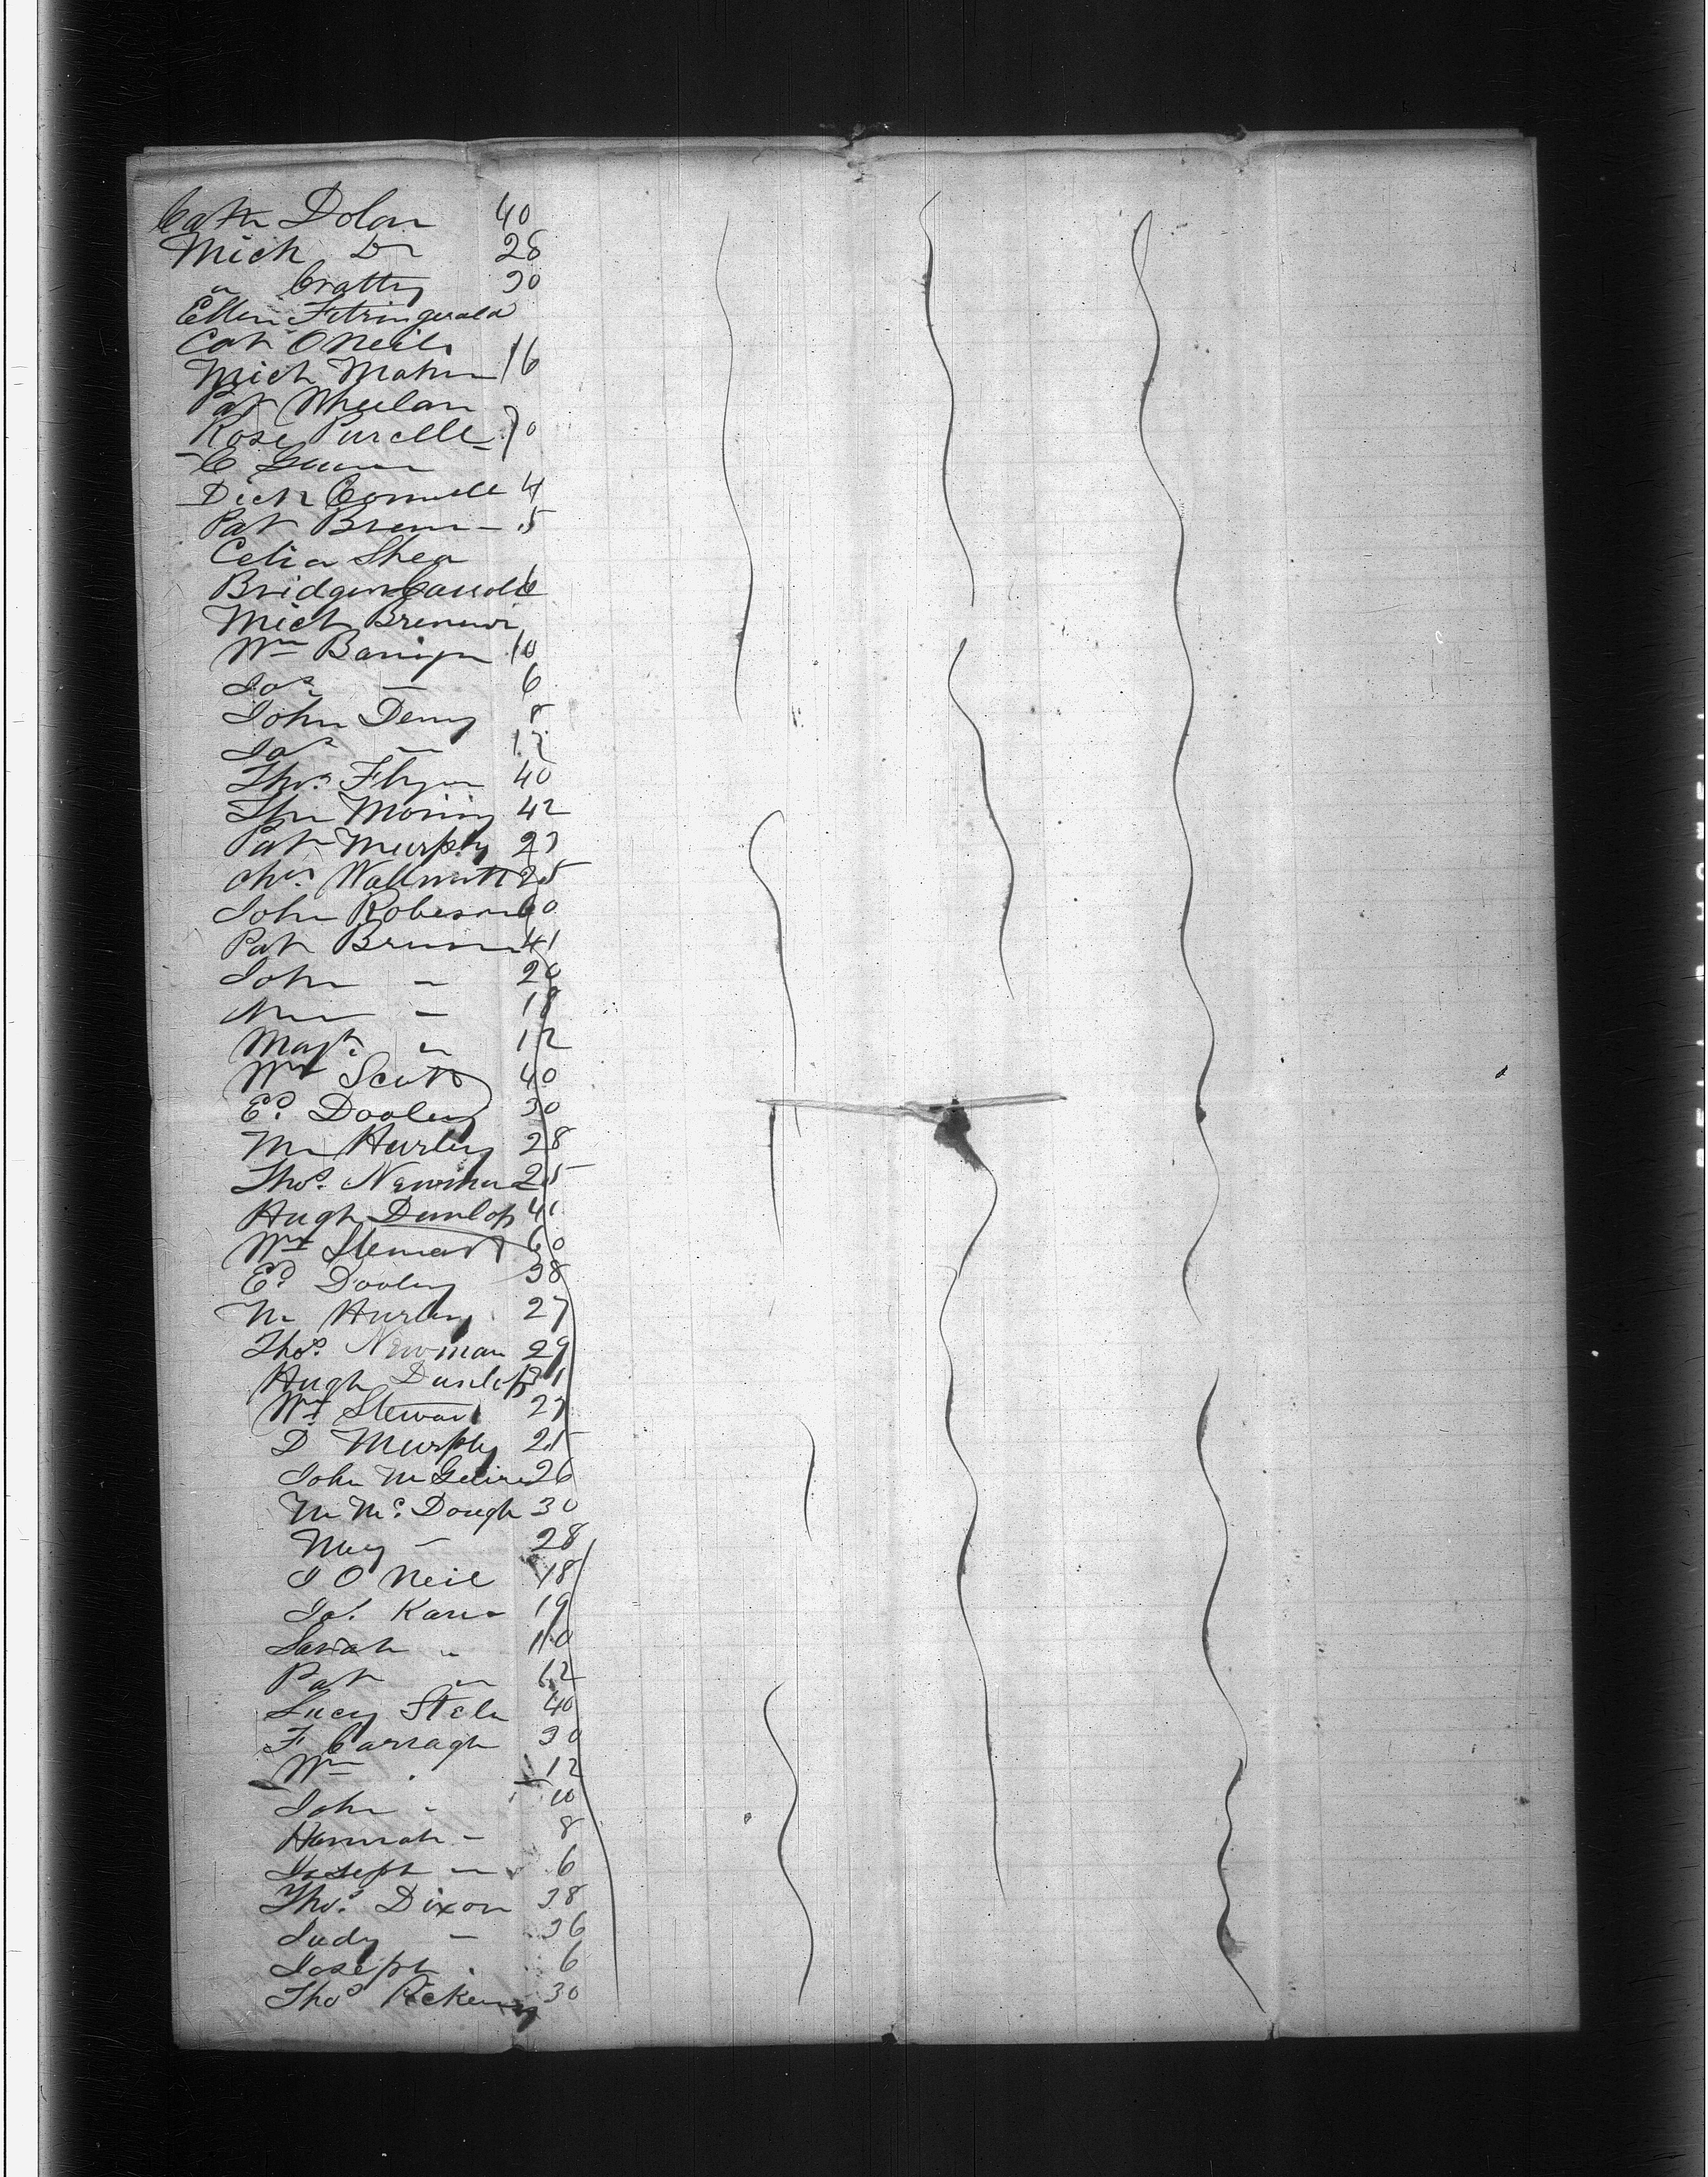 Cath Dolan 40
Mich Do 28
" Cratty 30
Ellen Fitzingerald
Cat O Neil
Mich Maher 16
Pat Wheelan
Rose Purcelle 70
C
Dick Connell 4
Pat Bren 5
Celia Shea
Bridget Carroll 6
Mich Brennan
Wm 10
Jas — 6
John Deny 8
Jas — 12
Thos. Flynn 40
Moriny 42
Pat Murphy 27
Chs. 25
John Robeson 60
Pat Brenn 41
John — 20
— 18
Magt. " 12
Wm Scott 40
Ed. Dooley 30
M Hurley 28
Thos. Newman 25
Hugh Dunlop 41
Wm Stewart 60
Ed. Dooley 38
M Hurley 27
Thos. Newman 29
Hugh Dunlop 31
Wm. Stewart 27
D Murphy 25
John McGuire 26
M Mc. Dough 30
Mary — 28
J O Neil 18
Jas. Kane 19
Sarah " 10
Pat " 12
Lucy 40
F Carragh 30
Wm 12
John " 10
Hannah — 8
Joseph — 6
Thos. Dixon 38
Judy — 36
Joseph 6
Thos 30